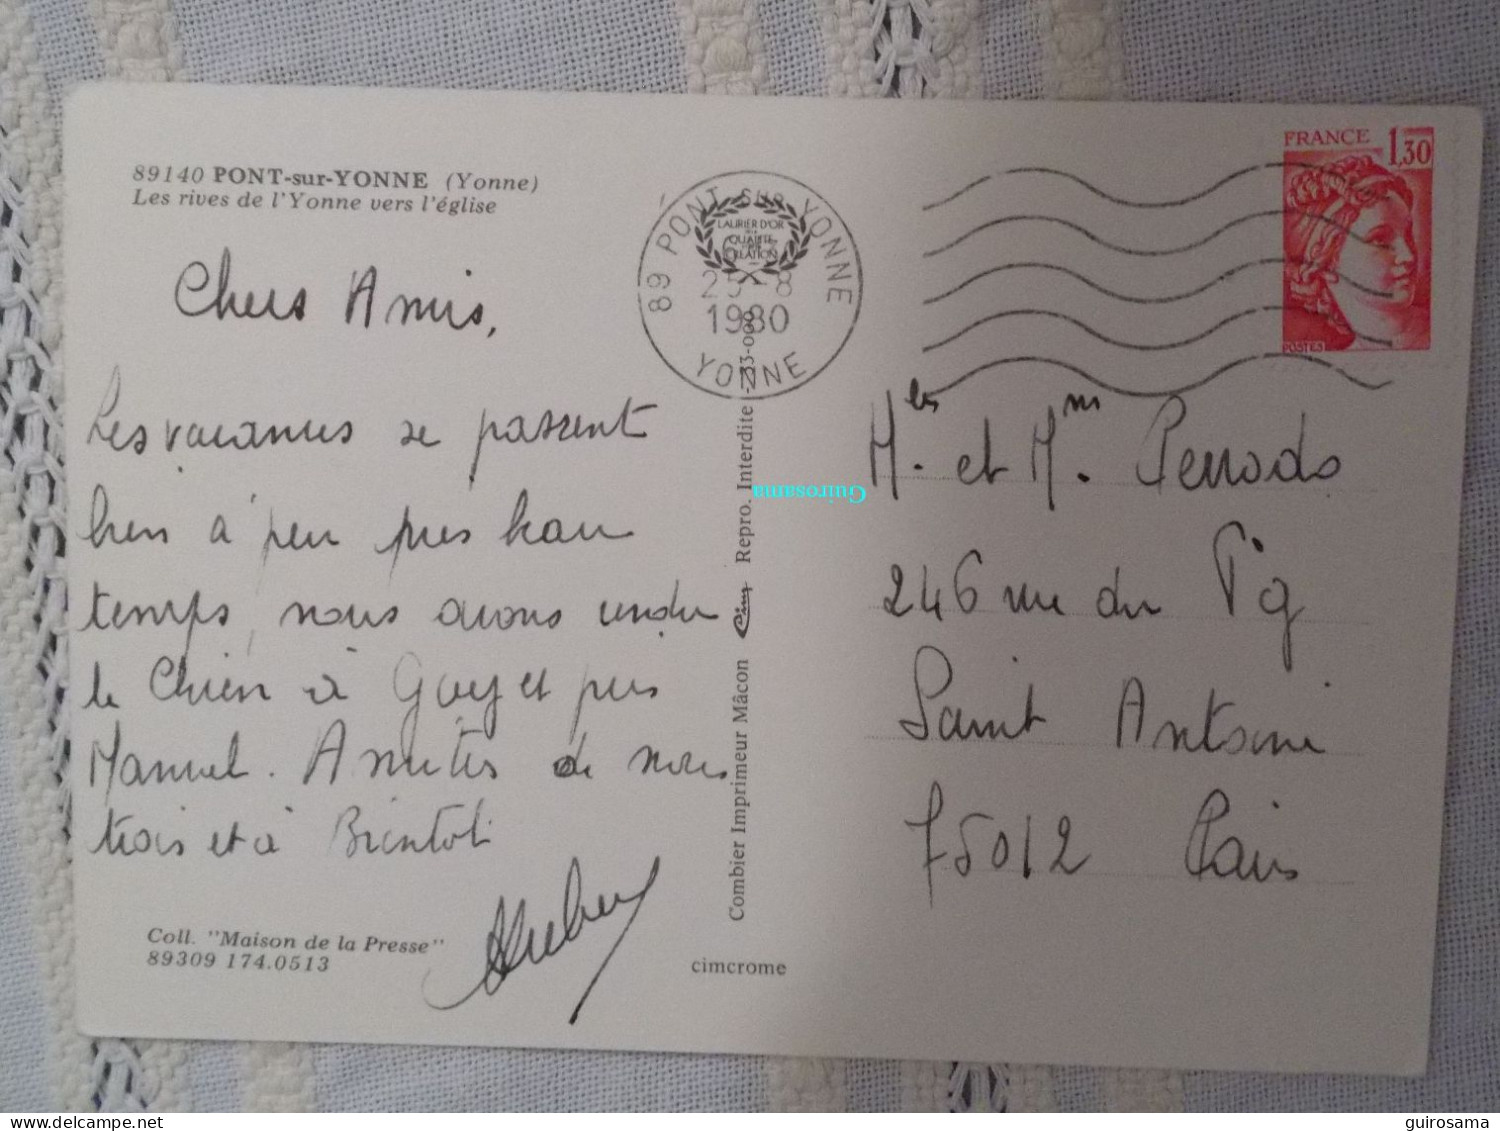 89140 PONT-sur-YONNE (Yonne)
Les rives de l'Yonne vers l'église
Chers Amis,
Les vacances se passent
bien à peu près beau
temps, nous avons vendu
le Chien à Guy et puis
Manuel. Amitiés de nous
trois et à Bientôt
Coll. "Maison de la Presse"
89309 174.0513
cimcrome
Combier Imprimeur Mâcon Cim Repro. Interdite
89 PONT-SUR-YONNE
LAURIER D'OR
QUALITÉ
CRÉATION
25-8
1980
YONNE
FRANCE 1,30
POSTES
Guirosama
et Mm. Perrodo
246 rue du Fg
Saint Antoine
75012 Paris
guirosama